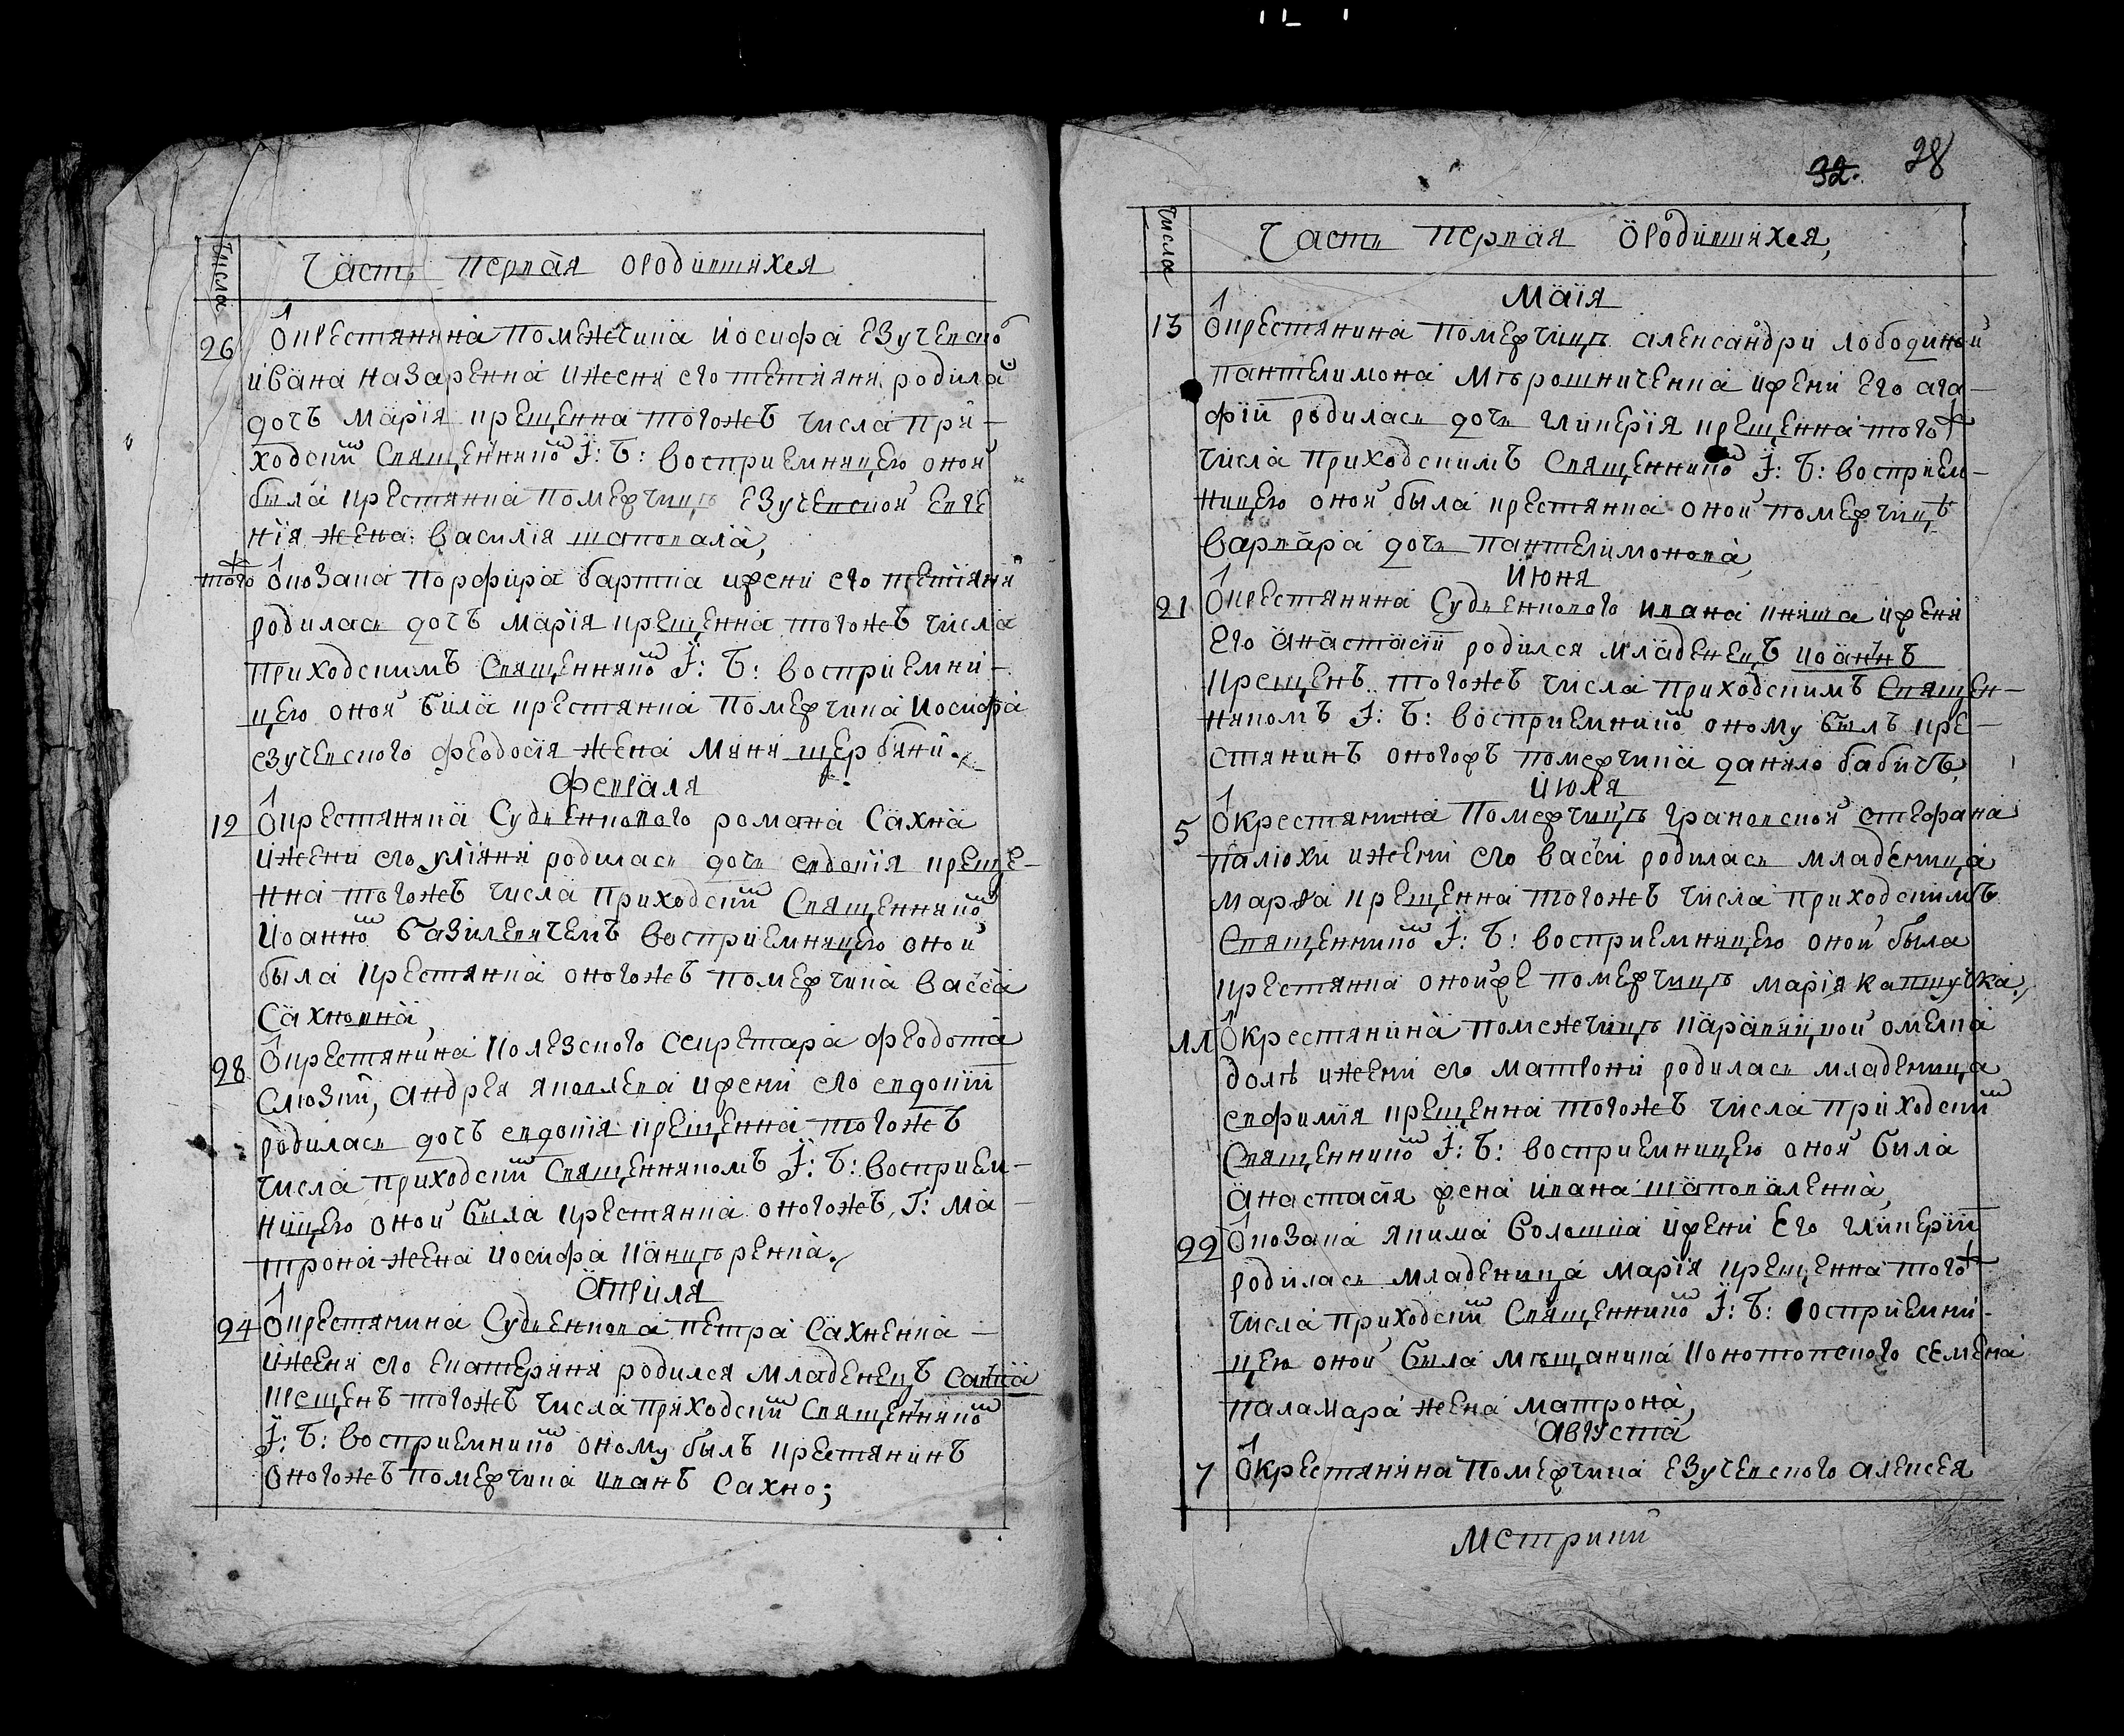 Числа
Часть первая о родившихся
26
У крестянина помежчика Иосифа Езучевско
Ивана Назаренка и жени его Тетяяни родила
дочъ Марія крещенна тогожъ числа при-
ходским священником І: Б: восприемницею оной
была крестянка помежчицѣ Езучевской Евге
нія жена Василія Шаповала,
того ж
У козака Порфира Бартка и жени его Тетіяни
родилась дочъ Марія крещенна тогожъ числа
приходскимъ священником І: Б: восприемни-
цею оной била крестянка помежчика Иосифа
Езучевского Феодосія жена Мини Щербини.
Февраля
12
У крестянина Судиенкового Романа Сахна
и жени его Уліяни родилась дочь Евдокія креще-
нна тогожъ числа приходским священником
Иоанном Базилевичемъ восприемницею оной
была крестянка оногожъ помежчика Васса
Сахновна,
28
У крестянина Колезского секретара Феодота
Слюзки, Андрея Яковлева и жени его Евдокіи
родилась дочъ Евдокія крещенна тогожъ
числа приходским священникомъ І: Б: восприем-
ницею оной была крестянка оногожъ, Г: Ма-
трона жена Иосифа Канцѣренка.
Апріля
24
У крестянина Судиенкова Петра Сахненка
и жени его Екатерини родился младенецъ Савка
крещенъ тогожъ числа приходским священником
І: Б: восприемником оному былъ крестянинъ
оногожъ помежчика Иванъ Сахно;
32. 28
Числа
Часть первая о родившихся,
Маія
13
У крестянина помежчицѣ Александри Лободиной
Пантелимона Мѣрошниченка и жени его Ага-
фіи родилась дочь Гликерія крещенна того ж
числа приходскимъ священником І: Б: восприем-
ницею оной была крестянка оной помежчицѣ
Варвара дочь Пантелимонова,
Июня
21
У крестянина Судиенкового Ивана Книша и жени
его Анастасіи родился младенецъ Иоаннъ
крещенъ тогожъ числа приходскимъ священ-
никомъ І: Б: восприемником оному былъ кре-
стянинъ оногожъ помежчика Данило Бабичъ,
Июля
5
У крестянина помежчицѣ Грановской Стефана
Паліохи и жени его Васси родилась младеница
Марѳа крещенна тогожъ числа приходскимъ
священником І: Б: восприемницею оной была
крестянка оной же помежчицѣ Марія Капшучка.
11
У крестянина помежчицѣ Каравицкой Омелка
Долѣ и жени его Матрони родилась младеница
Евфимія крещенна тогожъ числа приходским
священником І: Б: восприемницею оной была
Анастасія жена Ивана Шаповаленка,
22
У козака Якима Волошка и жени его Гликеріи
родилась младеница Марія крещенна того ж
числа приходским священником І: Б: восприемни-
цею оной была мѣщанина Конотопского Семена
Паламара жена Матрона,
Августа
7
У крестянина помежчика Езучевского Алексея
Метрики